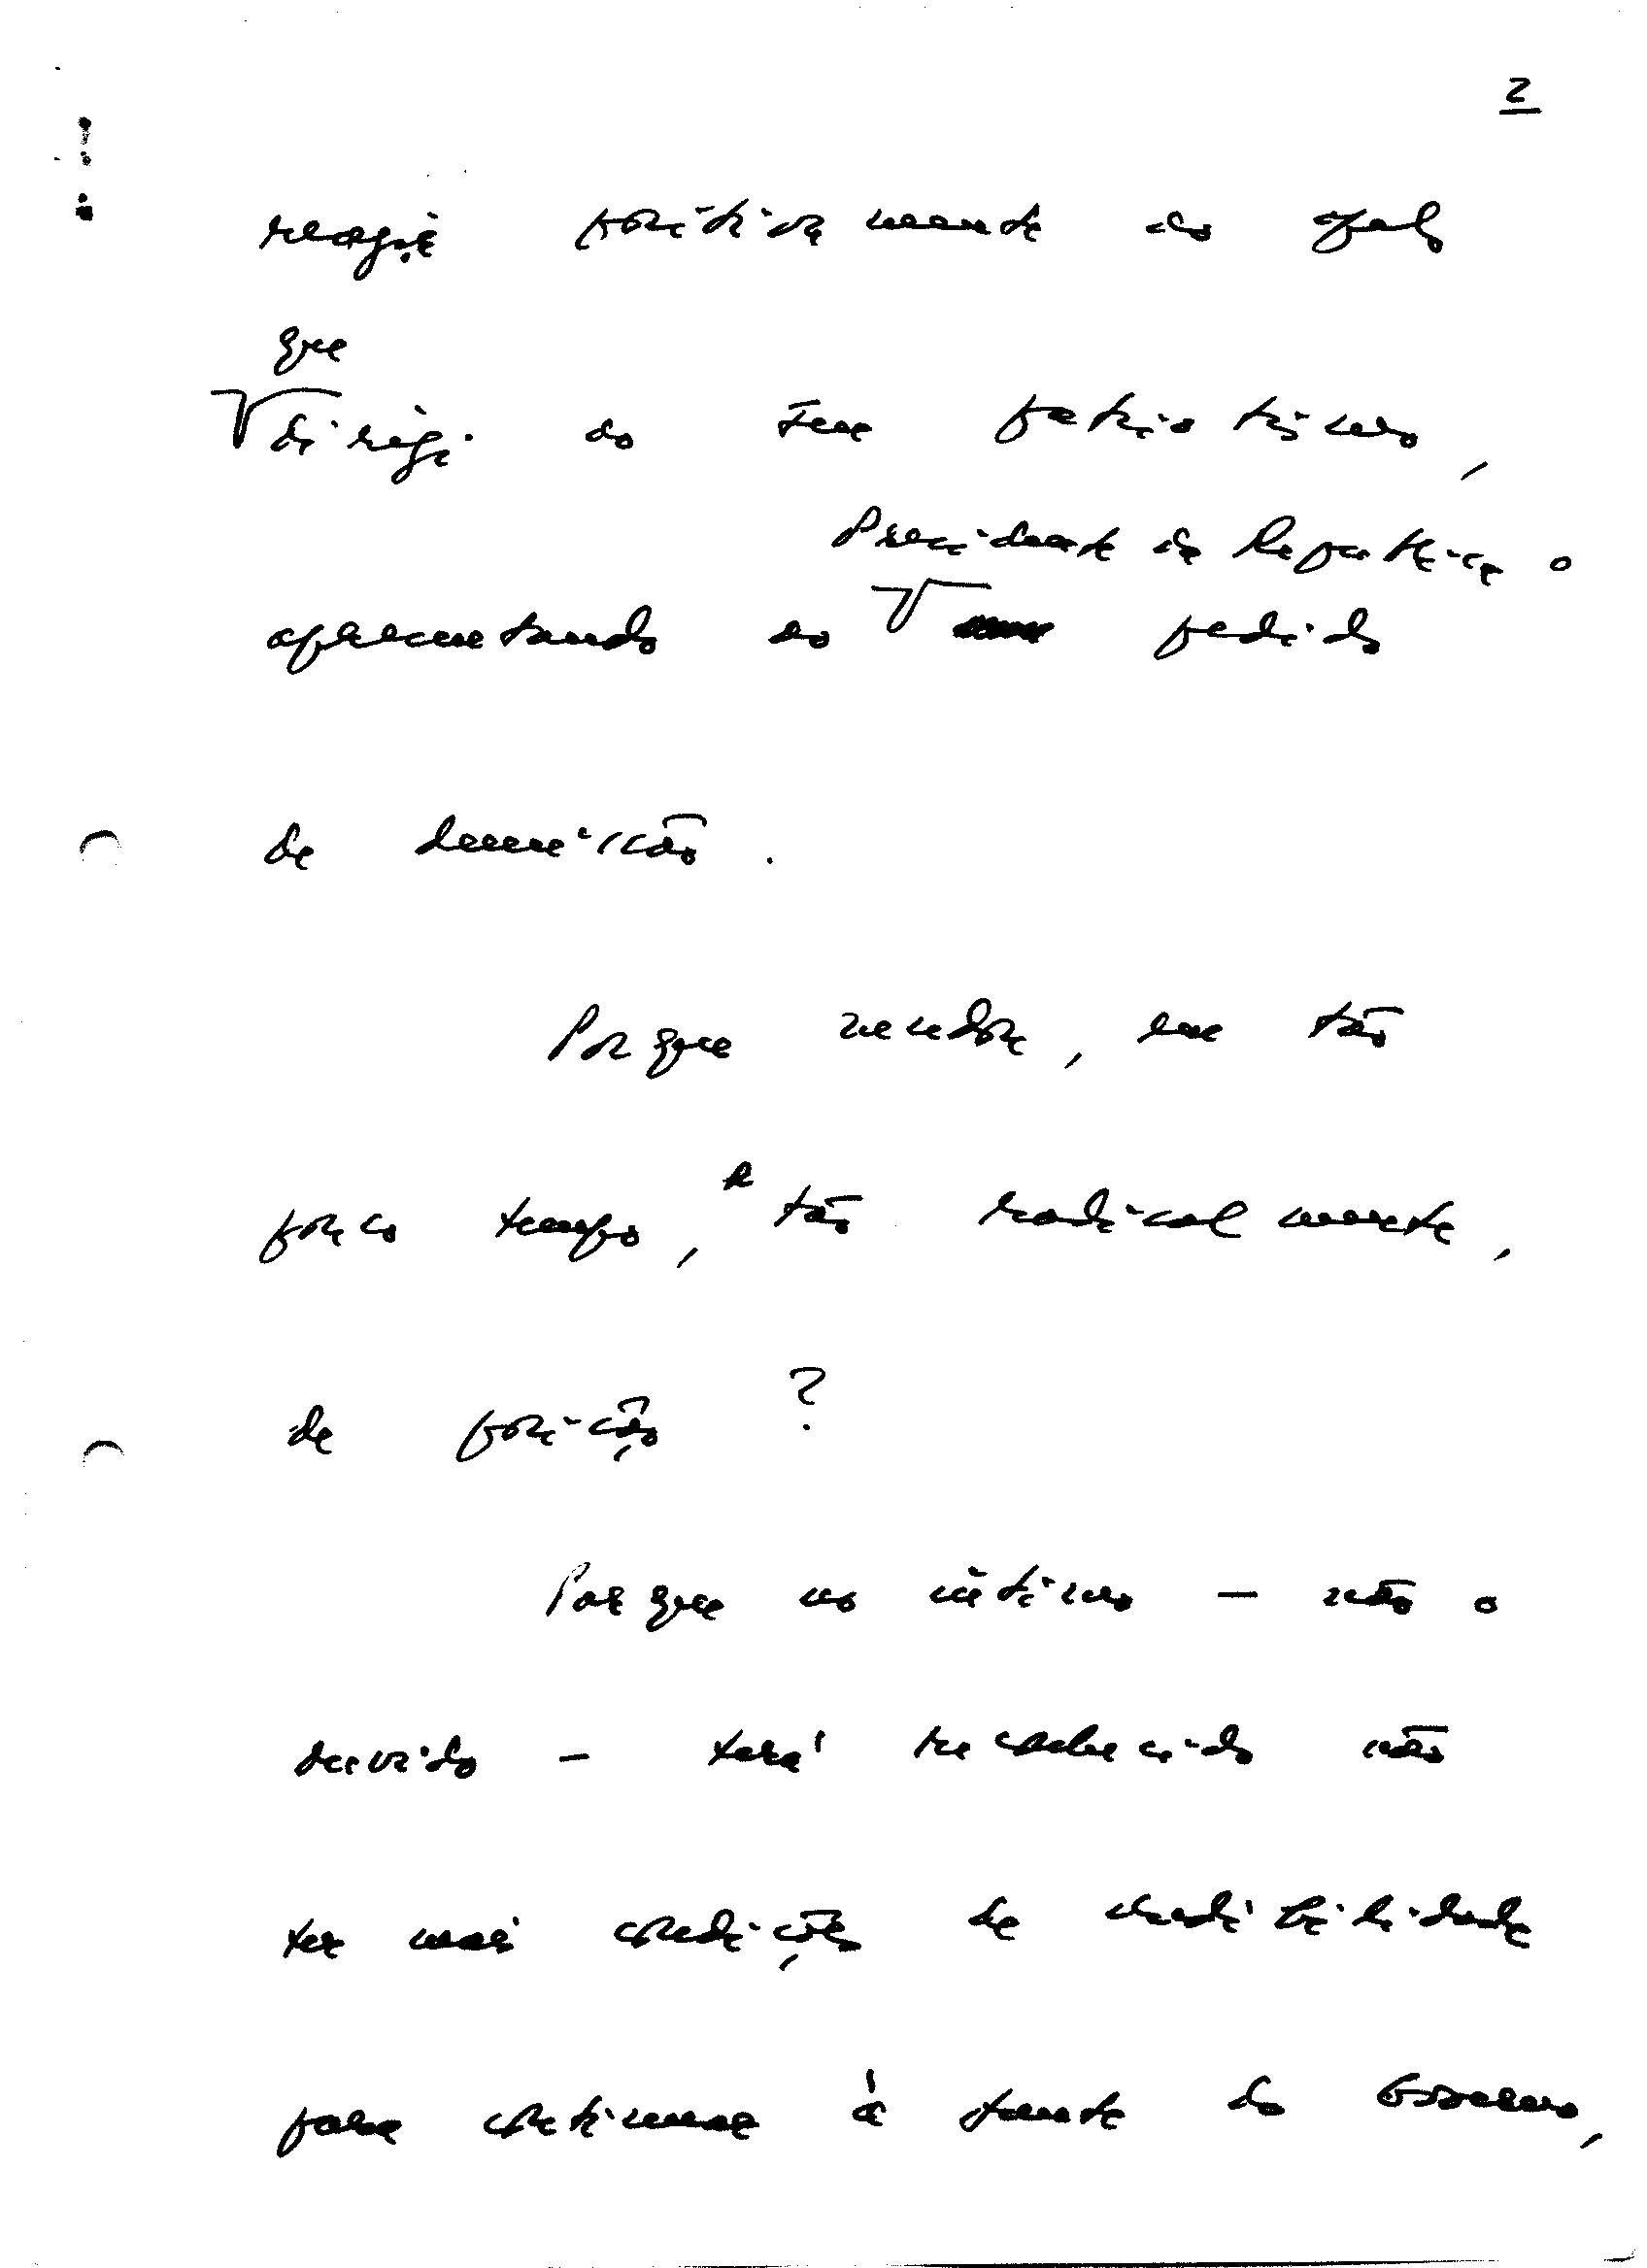 2
reagiu positivamente ao apelo
que
dirigi ao seu patriotismo,
Presidente da República o
apresentando ao pedido
de demissão.
Porque mudou, em tão
pouco tempo, e tão radicalmente,
de posição?
Porque no íntimo — não o
duvido — terá reconhecido não
ter mais condições de credibilidade
para continuar à frente do Governo,